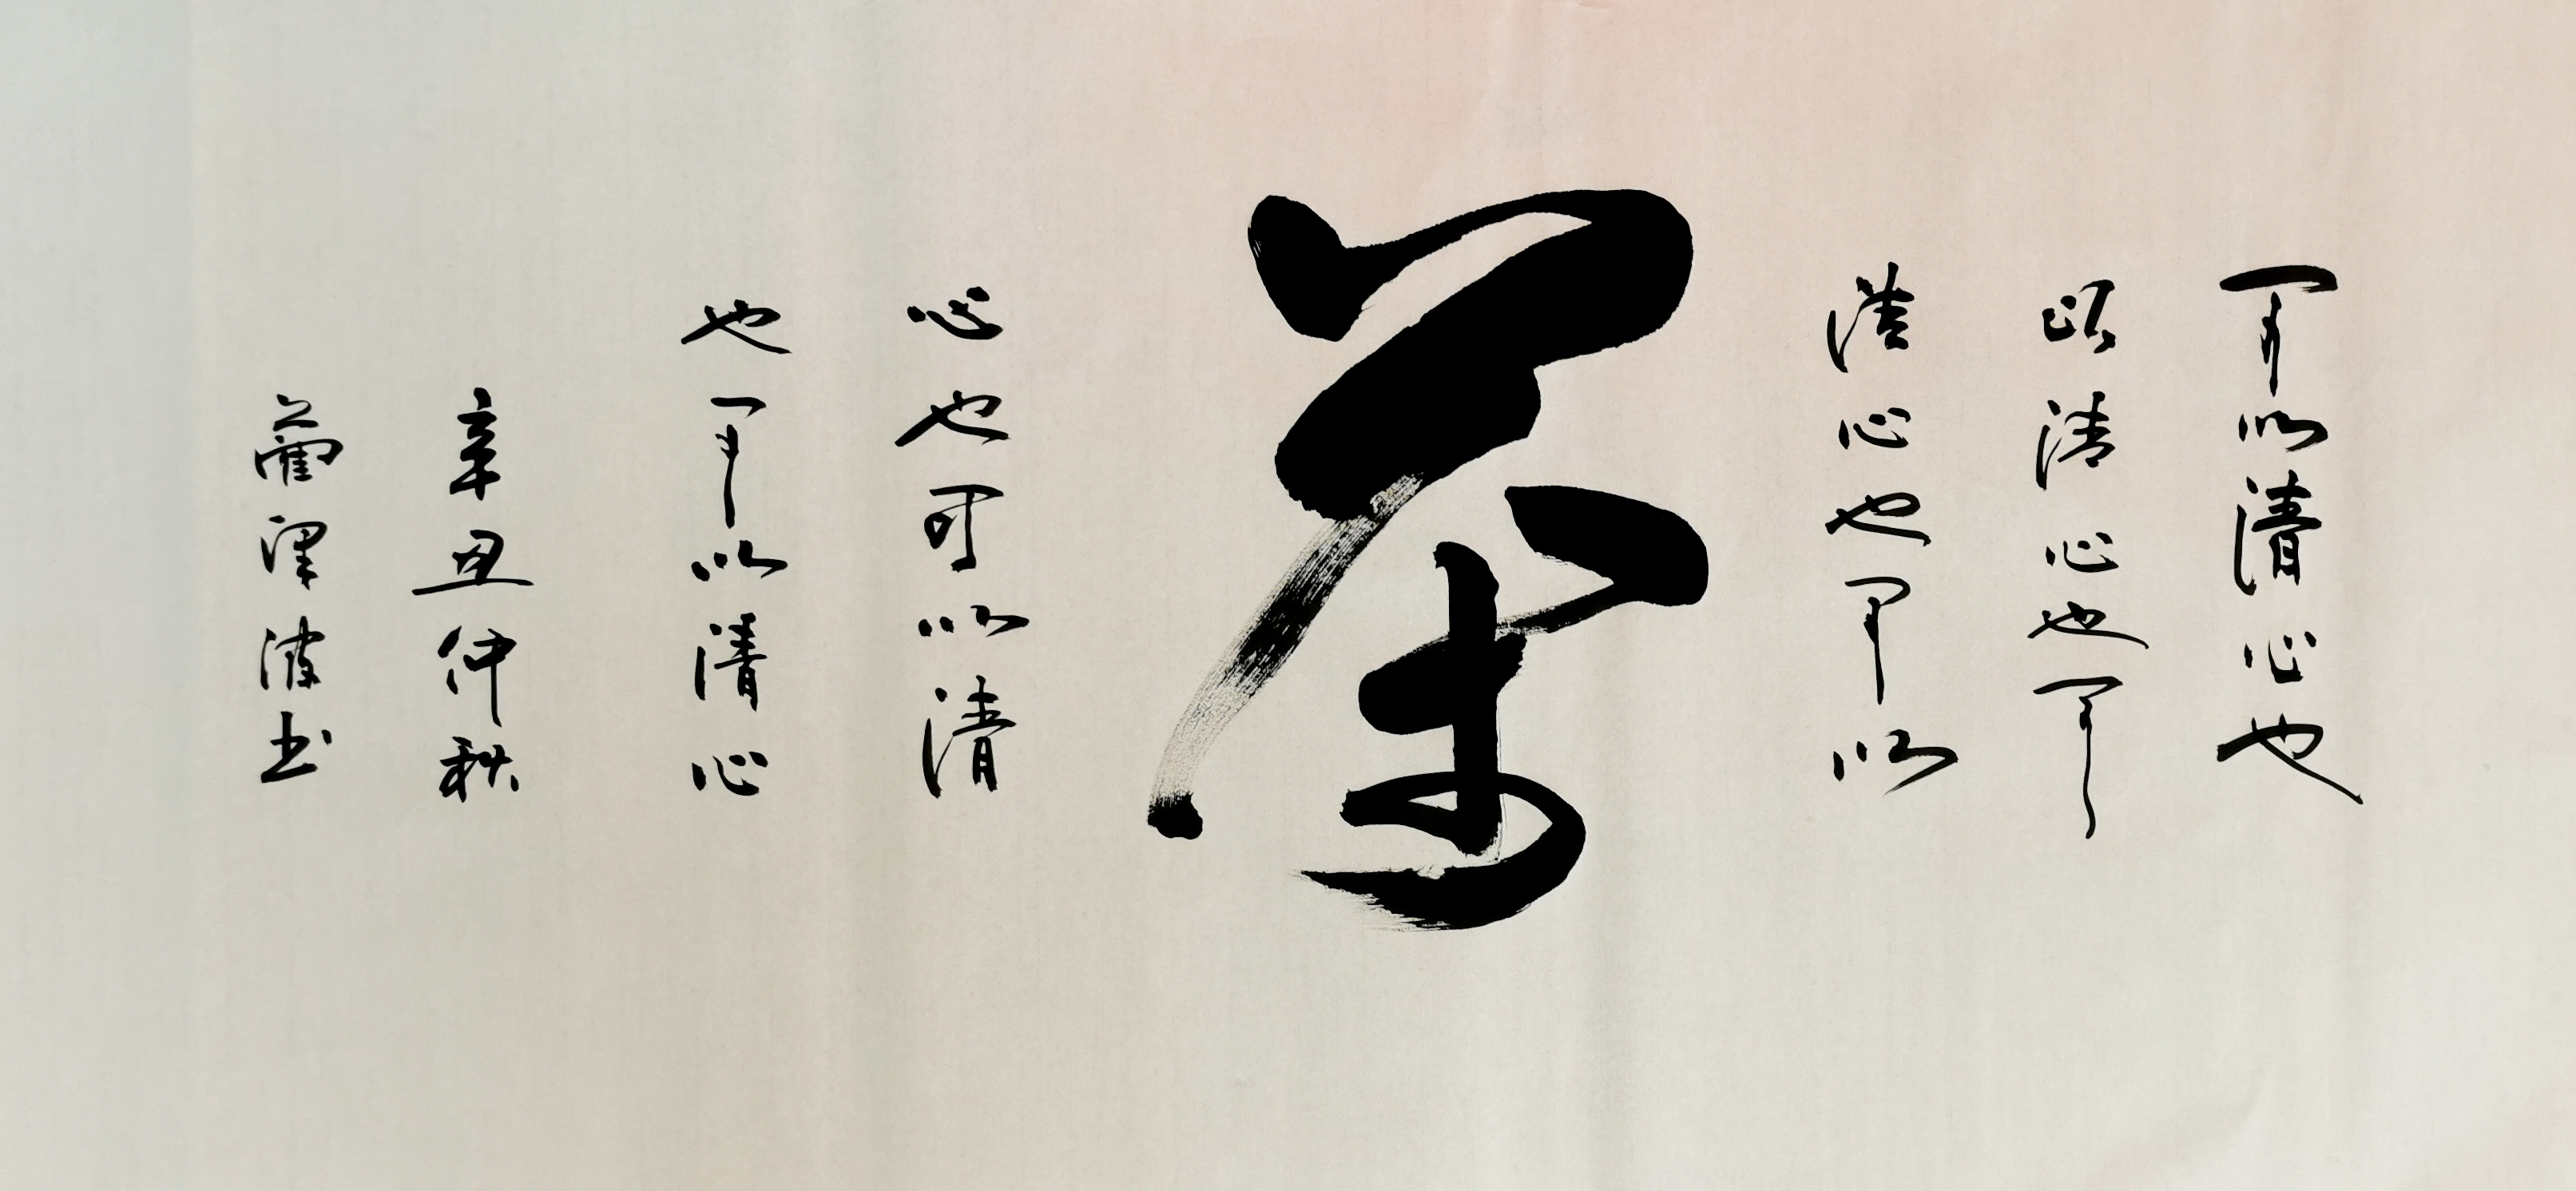 可以清心也
以清心也可
清心也可以
茶
心也可以清
也可以清心
辛丑仲秋
泽波书